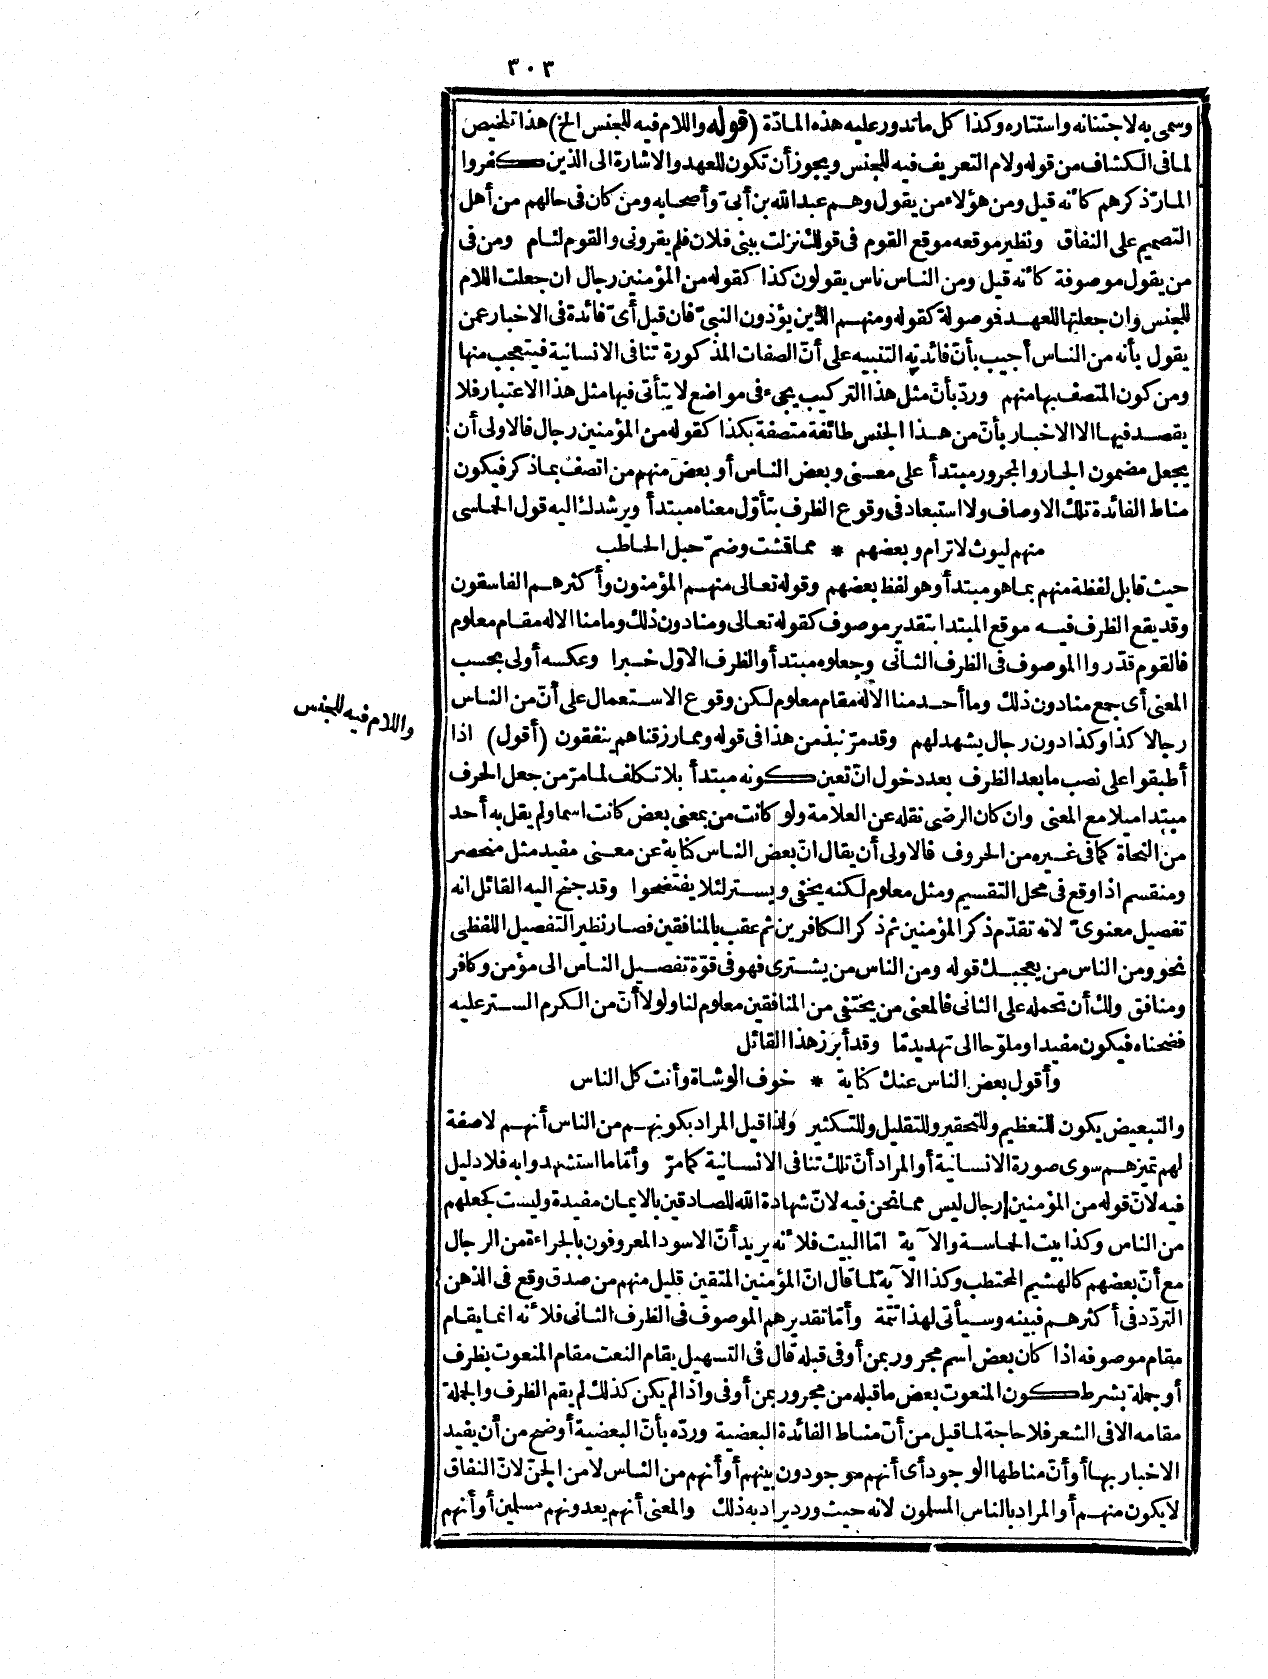 ٣٠٣
وسمى به لاجتنانه واستتاره وكذا كل ما تدور عليه هذه المادّة (قوله واللام فيه للجنس الخ) هذا تلخيص
لما فى الكشاف من قوله ولام التعريف فيه للجنس ويجوز أن تكون للعهد والاشارة الى الذين كفروا
المارّ ذكرهم كأنه قيل ومن هؤلاء من يقول وهم عبد الله بن أبىّ وأصحابه ومن كان فى حالهم من أهل
التصميم على النفاق ونظير موقعه موقع القوم فى قولك نزلت ببنى فلان فلم يقرونى والقوم لئام ومن فى
من يقول موصوفة كأنه قيل ومن الناس ناس يقولون كذا كقوله من المؤمنين رجال ان جعلت اللام
للجنس وان جعلتها للعهد فموصولة كقوله ومنهم الذين يؤذون النبىّ فان قيل أىّ فائدة فى الاخبار عمن
يقول بأنه من الناس أجيب بأنّ فائدته التنبيه على أنّ الصفات المذكورة تنافى الانسانية فيتعجب منها
ومن كون المتصف بها منهم وردّ بأنّ مثل هذا التركيب يجىء فى مواضع لا يتأتى فيها مثل هذا الاعتبار فلا
يقصد فيها الا الاخبار بأنّ من هذا الجنس طائفة متصفة بكذا كقوله من المؤمنين رجال فالاولى أن
يجعل مضمون الجار والمجرور مبتدأ على معنى وبعض الناس أو بعض منهم من اتصف بما ذكر فيكون
مناط الفائدة تلك الاوصاف ولا استبعاد فى وقوع الظرف بتأوّل معناه مبتدأ ويرشدك اليه قول الحماسى
منهم ليوث لا ترام وبعضهم * مما قشت وضمّ حبل الحاطب
حيث قابل لفظة منهم بما هو مبتدأ وهو لفظ بعضهم وقوله تعالى منهم المؤمنون وأكثرهم الفاسقون
وقد يقع الظرف فيه موقع المبتدا بتقدير موصوف كقوله تعالى ومنادون ذلك وما منا الا له مقام معلوم
فالقوم قدّروا الموصوف فى الظرف الثانى وجعلوه مبتدأ والظرف الاوّل خبرا وعكسه أولى بحسب
المعنى أى جمع منادون ذلك وما أحد منا الا له مقام معلوم لكن وقوع الاستعمال على أنّ من الناس
واللام فيه للجنس
رجالا كذا وكذا دون رجال يشهد لهم وقد مرّ نبذ من هذا فى قوله ومما رزقناهم ينفقون (أقول) اذا
أطبقوا على نصب ما بعد الظرف بعد دخول انّ تعين كونه مبتدأ بلا تكلف لما مرّ من جعل الحرف
مبتدا ميلا مع المعنى وان كان الرضى نقله عن العلامة ولو كانت من بمعنى بعض كانت اسما ولم يقل به أحد
من النحاة كما فى غيره من الحروف فالاولى أن يقال انّ بعض الناس كناية عن معنى مفيد مثل منحصر
ومنقسم اذا وقع فى محل التقسيم ومثل معلوم لكنه يخفى ويستر لئلا يفتضحوا وقد جنح اليه القائل انه
تفصيل معنوىّ لانه تقدّم ذكر المؤمنين ثم ذكر الكافرين ثم عقب بالمنافقين فصار نظير التفصيل اللفظى
نحو ومن الناس من يعجبك قوله ومن الناس من يشترى فهو فى قوّة تفصيل الناس الى مؤمن وكافر
ومنافق ولك أن تحمله على الثانى فالمعنى من يختفى من المنافقين معلوم لنا ولولا أنّ من الكرم الستر عليه
فضحناه فيكون مفيدا وملوّحا الى تهديدمّا وقد أبرز هذا القائل
وأقول بعض الناس عنك كناية * خوف الوشاة وأنت كل الناس
والتبعيض يكون للتعظيم وللتحقير وللتقليل وللتكثير ولذا قيل المراد بكونهم من الناس أنهم لا صفة
لهم تميزهم سوى صورة الانسانية أو المراد أنّ تلك تنافى الانسانية كما مرّ وأمّا ما استشهدوا به فلا دليل
فيه لانّ قوله من المؤمنين رجال ليس مما نحن فيه لانّ شهادة الله للصادقين بالايمان مفيدة وليست كجعلهم
من الناس وكذا بيت الحماسة والآية امّا البيت فلأنه يريد أنّ الاسود المعروفون بالجراءة من الرجال
مع أنّ بعضهم كالهشيم المحتطب وكذا الآية لما قال انّ المؤمنين المتقين قليل منهم من صدق وقع فى الذهن
التردّد فى أكثرهم فبينه وسيأتى لهذا تتمة وأمّا تقديرهم الموصوف فى الظرف الثانى فلأنه انما يقام
مقام موصوفه اذا كان بعض اسم مجرور بمن أو فى قبله قال فى التسهيل يقام النعت مقام المنعوت بظرف
أو جملة بشرط كون المنعوت بعض ما قبله من مجرور بمن أو فى واذا لم يكن كذلك لم يقم الظرف والجملة
مقامه الا فى الشعر فلا حاجة لما قيل من أنّ مناط الفائدة البعضية وردّه بأنّ البعضية أوضح من أن يفيد
الاخبار بها أو أنّ مناطها الوجود أى أنهم موجودون بينهم أو أنهم من الناس لا من الجنّ لانّ النفاق
لا يكون منهم أو المراد بالناس المسلمون لانه حيث ورد يراد به ذلك والمعنى أنهم يعدونهم مسلمين أو أنهم